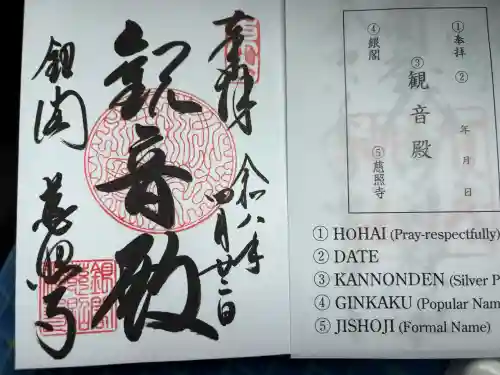 奉拝
令和八年
四月廿二日
観音殿
銀閣
慈照寺
①奉拝
② 年 月 日
③観音殿
④銀閣
⑤慈照寺
① HOHAI (Pray-respectfully)
② DATE
③ KANNONDEN (Silver P
④ GINKAKU (Popular Nam
⑤ JISHOJI (Formal Name)